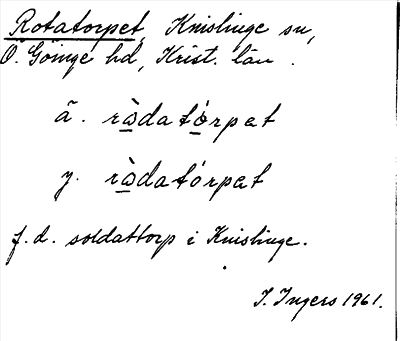 Rotatorpet, Knislinge sn,
Ö. Göinge hd, Krist. län.
ä. ràdatórpet
y. ràdatórpet
f.d. soldattorp i Knislinge.
I. Ingers 1961.